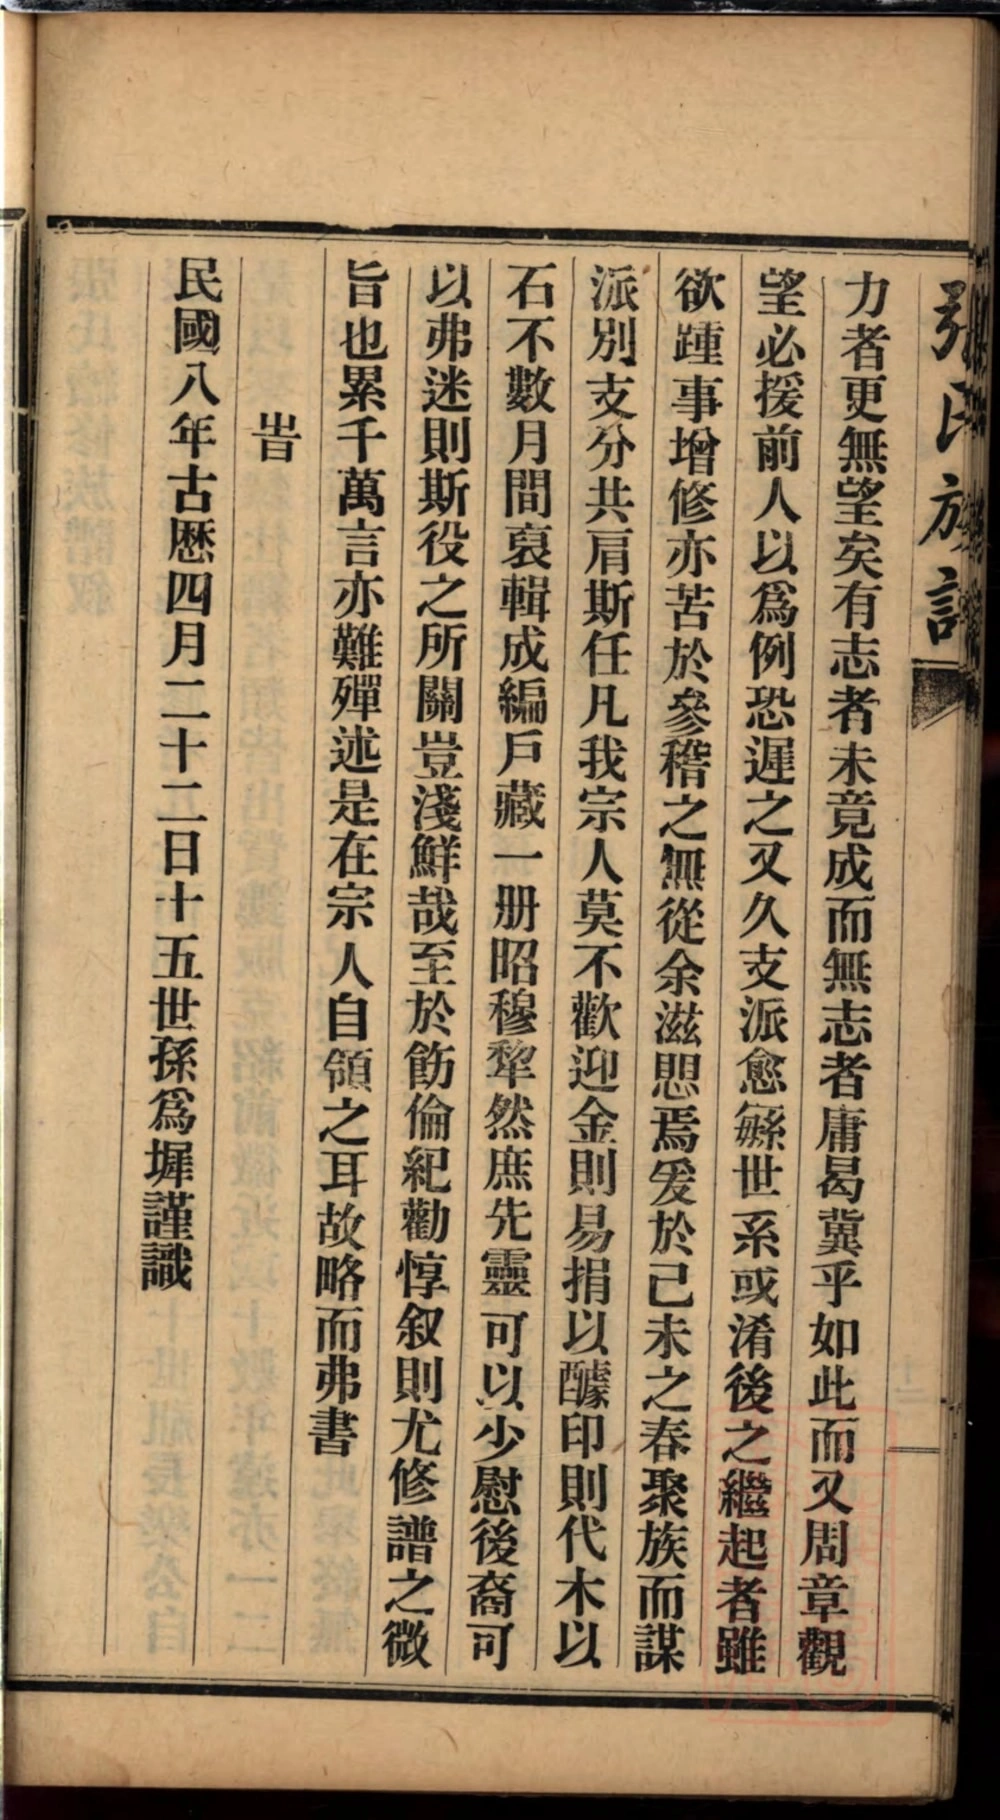 張氏族譜
力者更無望矣有志者未竟成而無志者庸曷冀乎如此而又周章觀
望必援前人以爲例恐遲之又久支派愈繁世系或淆後之繼起者雖
欲踵事增修亦苦於參稽之無從余滋愳焉爰於己未之春聚族而謀
派別支分共肩斯任凡我宗人莫不歡迎金則易捐以醵印則代木以
石不數月間裒輯成編戶藏一册昭穆犂然庶先靈可以少慰後裔可
以弗迷則斯役之所關豈淺鮮哉至於飭倫紀勸惇叙則尤修譜之微
旨也累千萬言亦難殫述是在宗人自領之耳故略而弗書
旹
民國八年古歷四月二十二日十五世孫爲墀謹識